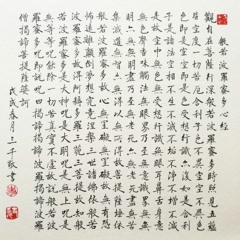 般若波羅蜜多心經
觀自在菩薩行深般若波羅蜜多時照見五蘊
皆空度一切苦厄舍利子色不異空空不異色
色即是空空即是色受想行識亦復如是舍利
子是諸法空相不生不滅不垢不淨不增不減
是故空中無色無受想行識無眼耳鼻舌身意
無色聲香味觸法無眼界乃至無意識界無無
明亦無無明盡乃至無老死亦無老死盡無苦
集滅道無智亦無得以無所得故菩提薩埵依
般若波羅蜜多故心無罣礙無罣礙故無有恐
怖遠離顛倒夢想究竟涅槃三世諸佛依般若
波羅蜜多故得阿耨多羅三藐三菩提故知般
若波羅蜜多是大神咒是大明咒是無上咒是
無等等咒能除一切苦真實不虛故說般若波
羅蜜多咒即說咒曰揭諦揭諦波羅揭諦波羅
僧揭諦菩提薩婆訶
戊戌春月三子敬書